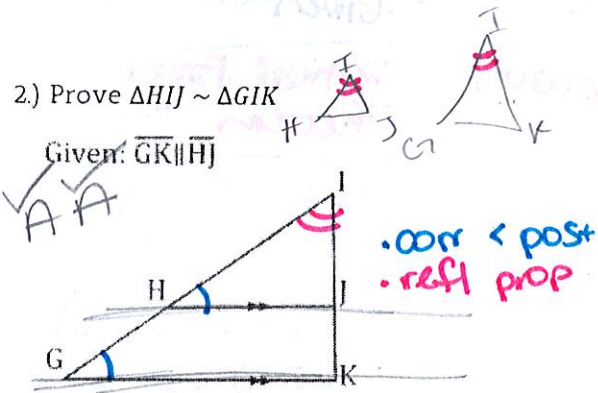 I
I
2.) Prove ΔHIJ ~ ΔGIK
H
J
G
K
Given: GK∥HJ
A A
I
• corr < post
• refl prop
H
J
G
K